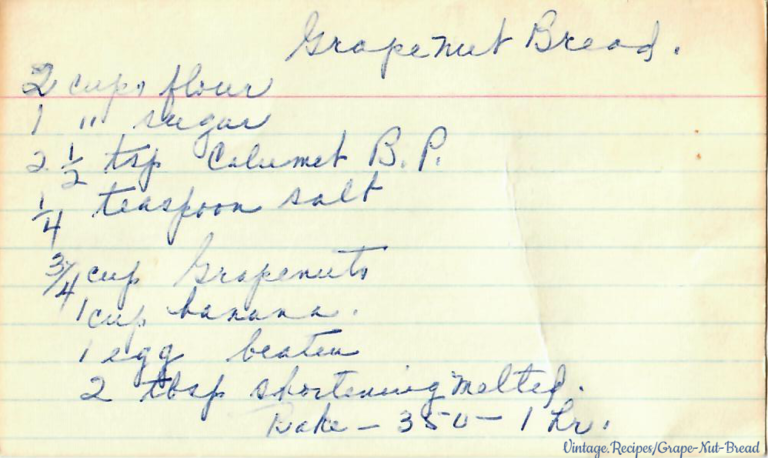 Grapenut Bread.
2 cups flour
1 " sugar
2 1/2 tsp Calumet B.P.
1/4 teaspoon salt
3/4 cup Grapenuts
1 cup banana.
1 egg beaten
2 tbsp shortening melted.
Bake - 350 - 1 hr.
Vintage.Recipes/Grape-Nut-Bread